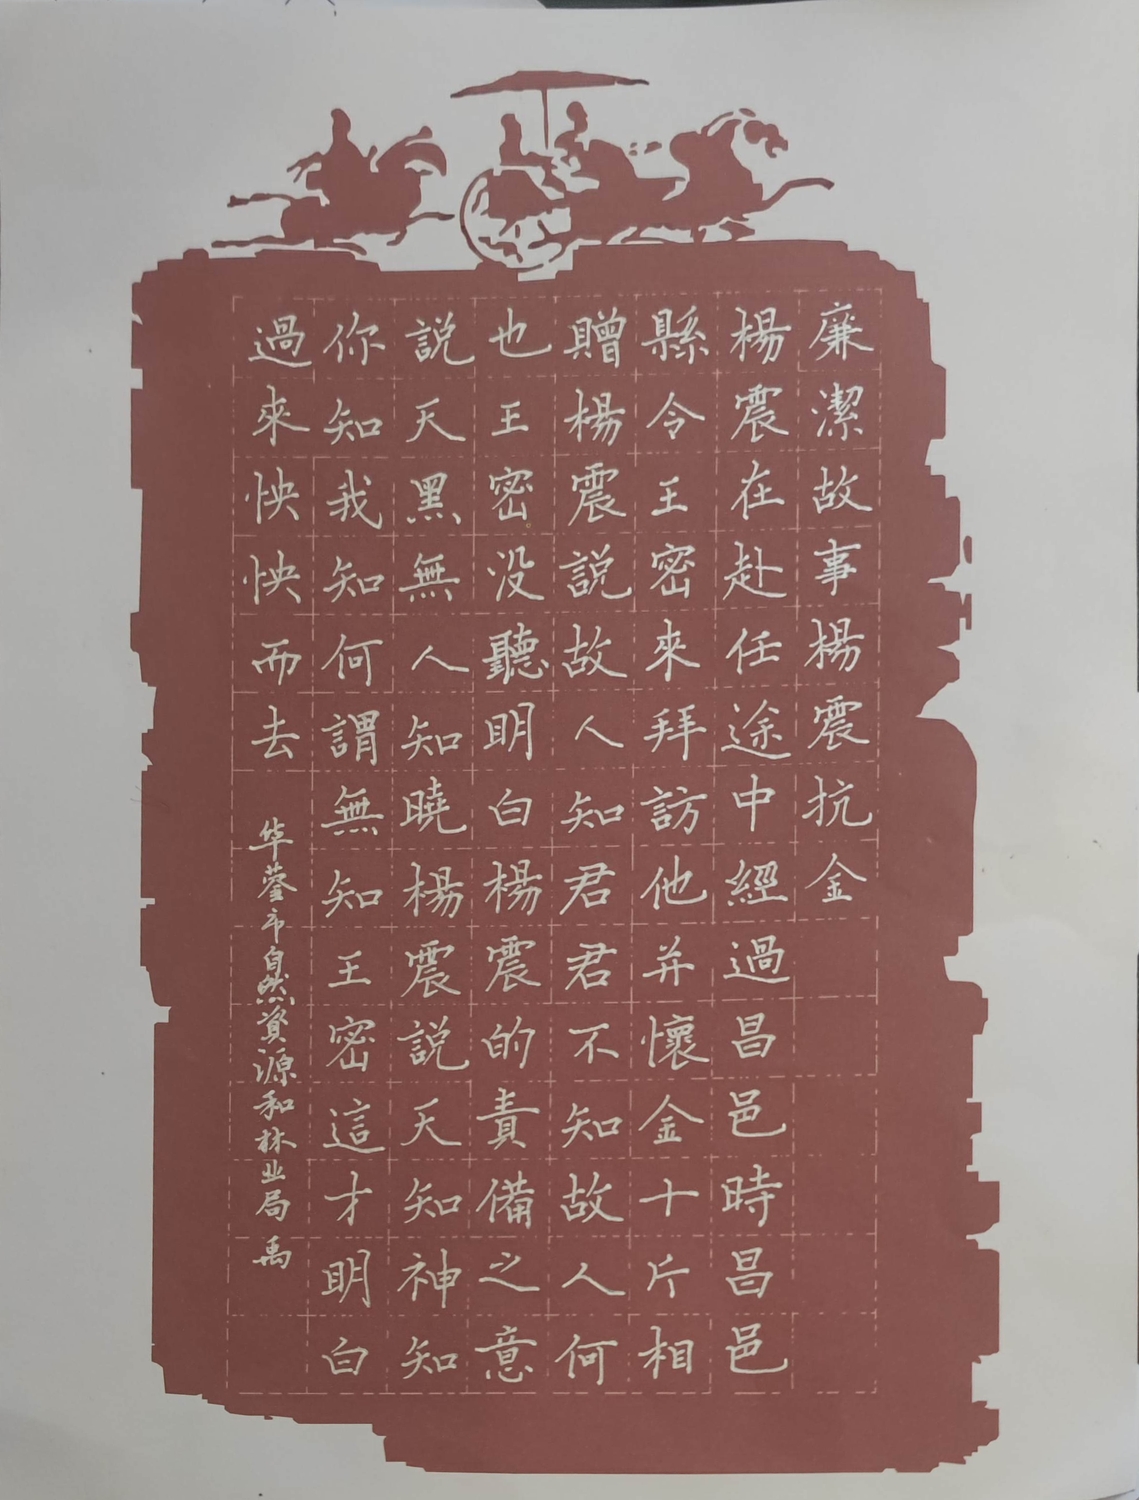 廉潔故事楊震抗金
楊震在赴任途中經過昌邑時昌邑
縣令王密來拜訪他并懷金十斤相
贈楊震説故人知君君不知故人何
也王密没聽明白楊震的責備之意
説天黑無人知曉楊震説天知神知
你知我知何謂無知王密這才明白
過來怏怏而去
华蓥市自然資源和林业局 禹